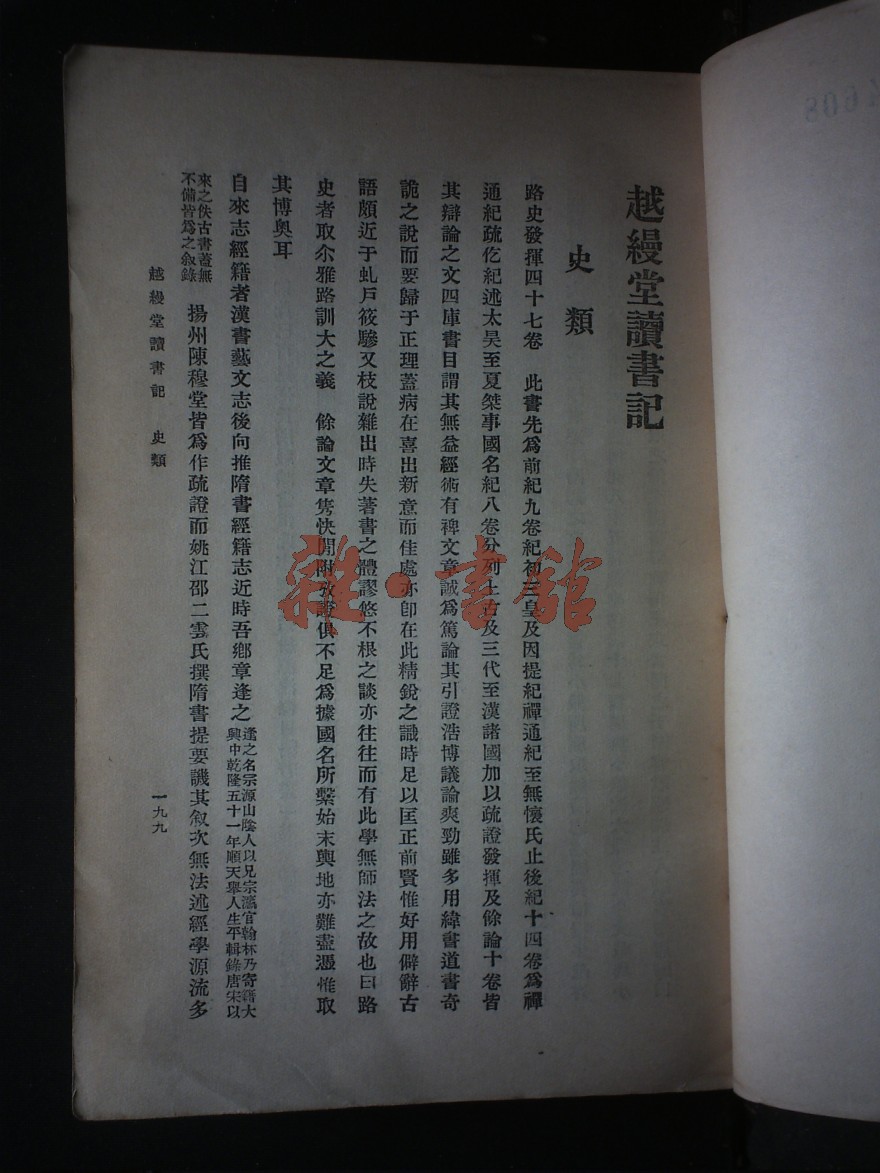 越縵堂讀書記
史類
路史發揮四十七卷　此書先爲前紀九卷紀初三皇及因提紀禪通紀至無懷氏止後紀十四卷爲禪
通紀疏仡紀述太昊至夏桀事國名紀八卷分列上古及三代至漢諸國加以疏證發揮及餘論十卷皆
其辯論之文四庫書目謂其無益經術有裨文章誠爲篤論其引證浩博議論爽勁雖多用緯書道書奇
詭之說而要歸于正理蓋病在喜出新意而佳處亦卽在此精銳之識時足以匡正前賢惟好用僻辭古
語頗近于虬戶筱驂又枝說雜出時失著書之體謬悠不根之談亦往往而有此學無師法之故也曰路
史者取尒雅路訓大之義　餘論文章雋快閒附攷證俱不足爲據國名所繫始末輿地亦難盡憑惟取
其博奧耳
自來志經籍者漢書藝文志後向推隋書經籍志近時吾鄉章逢之
逢之名宗源山陰人以兄宗瀛官翰林乃寄籍大
興中乾隆五十一年順天舉人生平輯錄唐宋以
來之佚古書蓋無
不備皆爲之敘錄
揚州陳穆堂皆爲作疏證而姚江邵二雲氏撰隋書提要譏其敘次無法述經學源流多
越縵堂讀書記　史類
一九九
雜·書館
4608